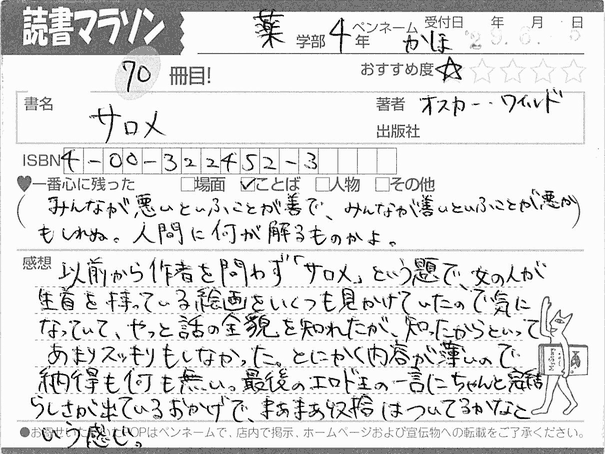 読書マラソン
薬 学部 4年 ペンネーム かほ 受付日 年 月 日
70 冊目!
おすすめ度 ★☆☆☆☆
書名 サロメ
著者 オスカー・ワイルド
出版社
ISBN 4-00-322452-3
♥一番心に残った □場面 ☑ことば □人物 □その他
(みんなが悪いといふことが善で、みんなが善いといふことが悪か
もしれぬ。人間に何が解るものかよ。)
感想 以前から作者を問わず「サロメ」という題で、女の人が
生首を持っている絵画をいくつも見かけていたので気に
なっていて、やっと話の全貌を知れたが、知ったからといって
あまりスッキリもしなかった。とにかく内容が薄いので
納得も何も無い。最後のエロド王の一言にちゃんと完結
らしさが出ているおかげで、まあまあ収拾はついてるかなと
いう感じ。
●お寄せいただいたPOPはペンネームで、店内で掲示、ホームページおよび宣伝物への転載をご了承ください。